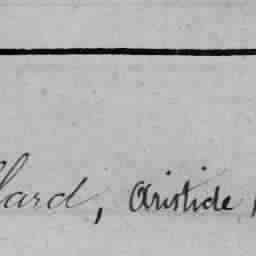 llard, Aristide